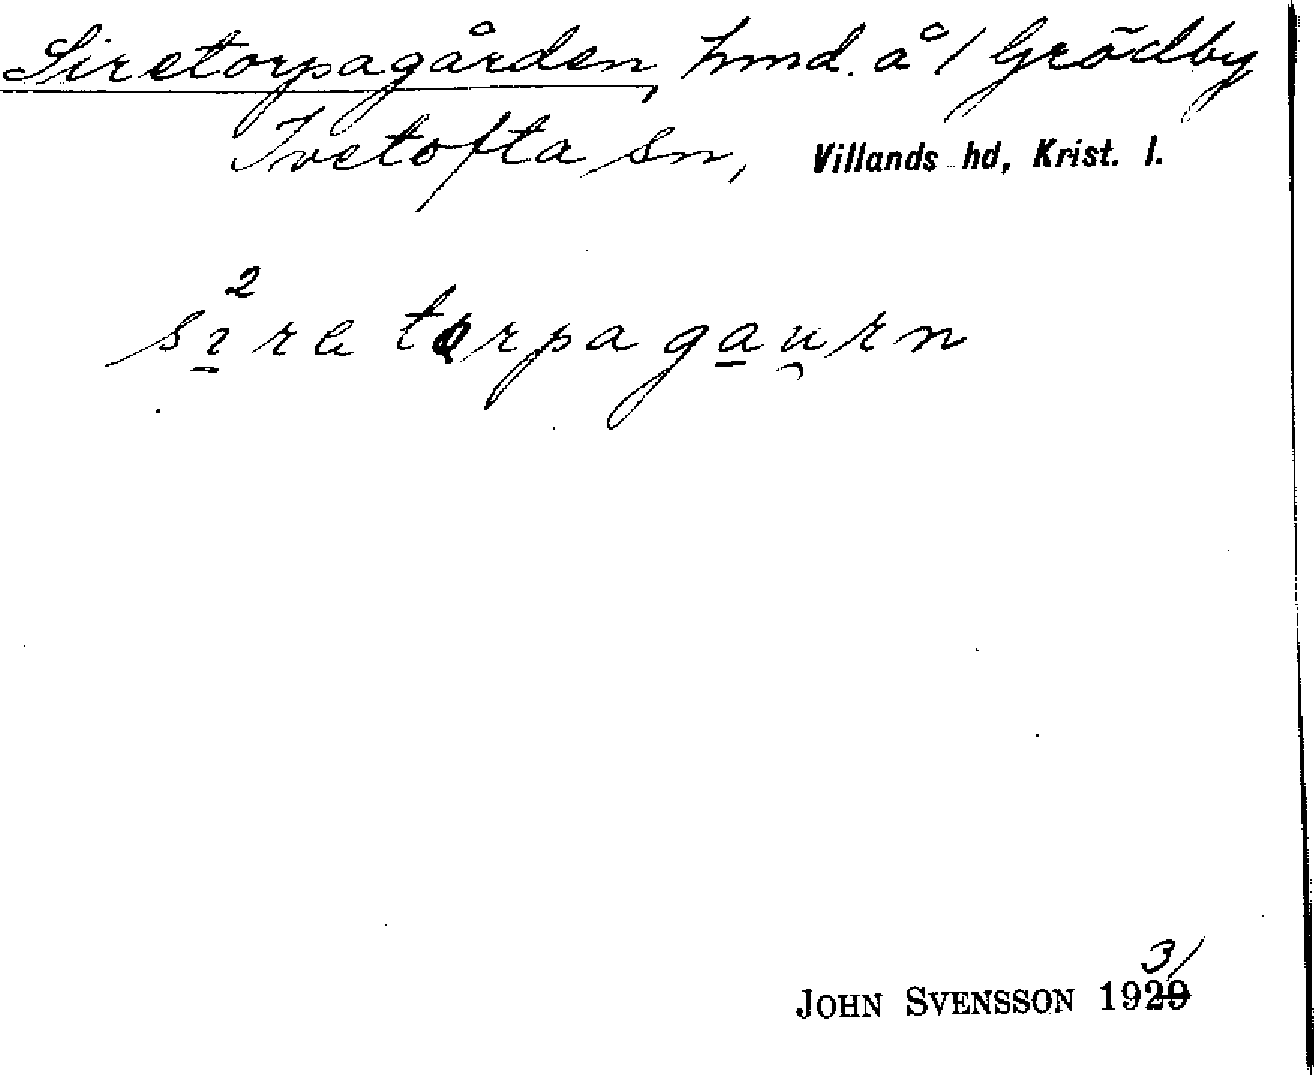 Siretorpagården, hmd. å 1 Grödby
Ivetofta sn, Villands hd, Krist. l.
2
sire torpagaurn
31
JOHN SVENSSON 1929